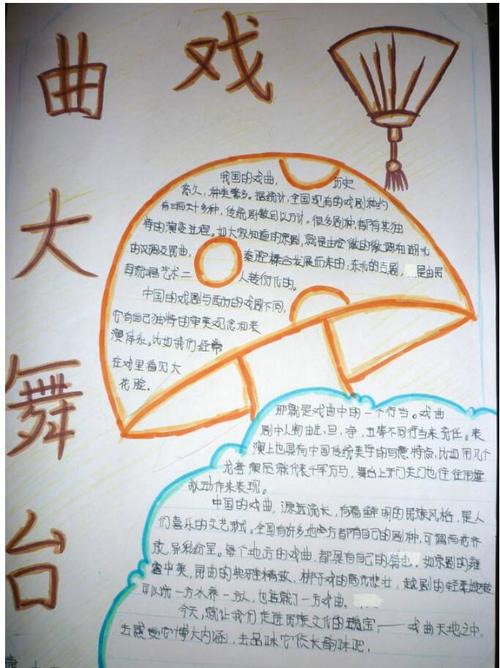 戏
曲
大
舞
台
我国的戏曲，历史
悠久，种类繁多。据统计，全国现有的戏剧种约
有三百六十多种，传统剧数目以万计。很多剧种，都有其独
特的演变过程。如大家知道的京剧，就是由安徽的徽调和湖北
的汉调及昆曲，秦腔揉合发展而来的；东北的吉剧，是由民
间说唱艺术二人转衍化的。
中国的戏剧与西方的戏剧不同，
它有自己独特的审美观念和表
演体系。比如我们经常
在戏里看见大
花脸，
那就是戏曲中的一个行当。戏曲
剧中人物由生，旦，净，丑等不同行当来充任。表
演上也具有中国传统美学的写意特点，比如用几个
龙套演员就代表千军万马，舞台上开门关门也往往用虚
拟动作来表现。
中国的戏曲，源远流长，有着鲜明的民族风格，是人
们喜乐的文艺形式。全国有许多地方都有自己的剧种，可谓百花齐
放，异彩纷呈。每个地方的戏曲，都具有自己的特色，如京剧的雍
容华美，昆曲的典雅精致，越剧的轻柔婉转
可以说一方水养一方人，也造就了一方戏曲。
今天，就让我们走进民族文化的瑰宝——戏曲天地之中，
去感受它博大内涵，去品味它悠长韵味吧，